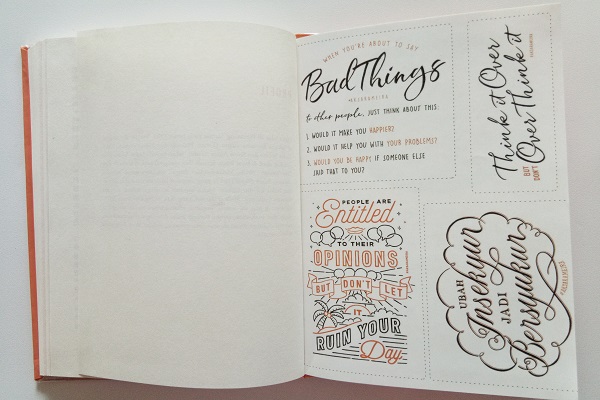 WHEN YOU'RE ABOUT TO SAY
Bad Things
to other people, JUST THINK ABOUT THIS:
1. WOULD IT MAKE YOU HAPPIER?
2. WOULD IT HELP YOU WITH YOUR PROBLEMS?
3. WOULD YOU BE HAPPY IF SOMEONE ELSE
SAID THAT TO YOU?
Think it Over
BUT DON'T
Over Think it
PEOPLE ARE
Entitled
TO THEIR
OPINIONS
BUT DON'T LET
IT
RUIN YOUR
Day
UBAH
Insekyur
JADI
Bersyukur